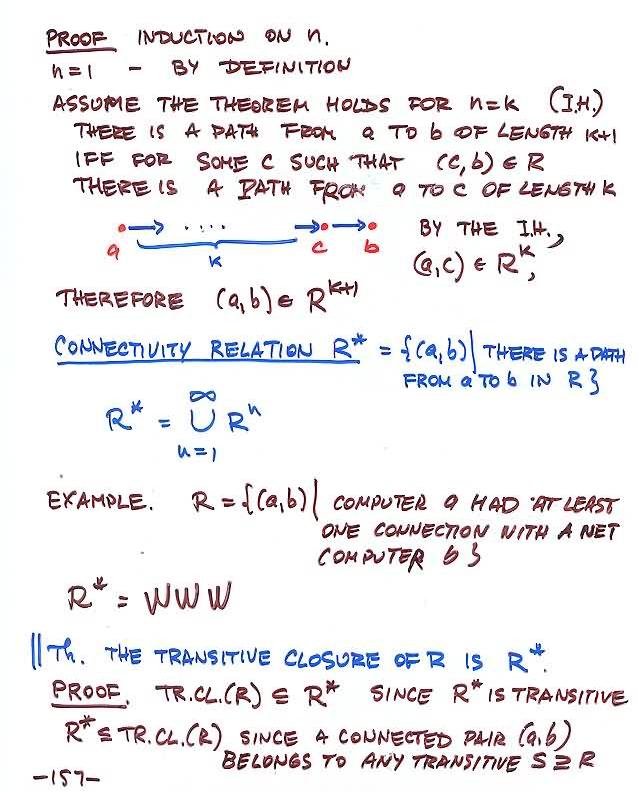 PROOF INDUCTION ON n.
n=1 - BY DEFINITION
ASSUME THE THEOREM HOLDS FOR n=k (I.H.)
THERE IS A PATH FROM a TO b OF LENGTH k+1
IFF FOR SOME C SUCH THAT (c,b) ∈ R
THERE IS A PATH FROM a TO C OF LENGTH k
a → .... → c → b BY THE I.H.,
k (a,c) ∈ R^k,
THEREFORE (a,b) ∈ R^k+1
CONNECTIVITY RELATION R* = {(a,b)| THERE IS A PATH
FROM a TO b IN R}
∞
R* = ∪ R^n
n=1
EXAMPLE. R = {(a,b)| COMPUTER a HAD AT LEAST
ONE CONNECTION WITH A NET
COMPUTER b}
R* = WWW
|| Th. THE TRANSITIVE CLOSURE OF R IS R*.
PROOF. TR.CL.(R) ⊆ R* SINCE R* IS TRANSITIVE
R* ⊆ TR.CL.(R) SINCE A CONNECTED PAIR (a,b)
BELONGS TO ANY TRANSITIVE S ⊇ R
-157-